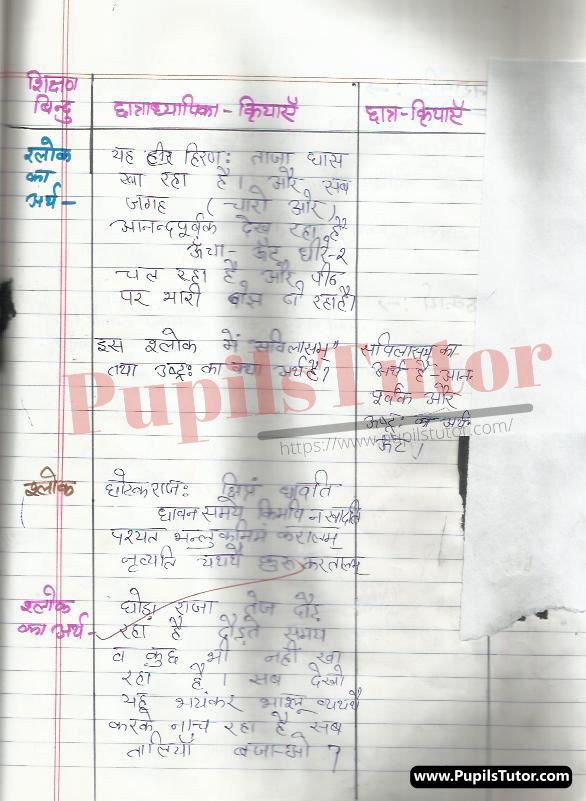 शिक्षण
बिन्दु
छात्राध्यापिका - क्रियाएँ
छात्र-क्रियाएँ
श्लोक
का
अर्थ -
यह हिरणः ताजा घास
खा रहा है। और सब
जगह (चारो ओर)
आनन्दपूर्वक देख रहा है
ऊँचा- ऊँट धीरे-२
चल रहा है और पीठ
पर भारी बोझ ढो रहा है।
इस श्लोक में "सविलासम्"
तथा उष्ट्रः का क्या अर्थ है?
सविलासम् का
अर्थ है - आनन्द
पूर्वक और
उष्ट्रः का अर्थ
ऊँट।
PupilsTutor
https://www.pupilstutor.com/
श्लोक
घोटकराजः क्षिप्रं धावति
धावन समये किमपि न खादति
पश्यत भल्लुकमिमं करालम्
नृत्यति कुरु करतालम्
श्लोक
का अर्थ -
घोड़ा राजा तेज दौड़
रहा है दौड़ते समय
व कुछ भी नहीं खा
रहा है। सब देखो
यह भयंकर भालू थथथै
करके नाच रहा है सब
तालियाँ बजा-ओ ?
www.PupilsTutor.com